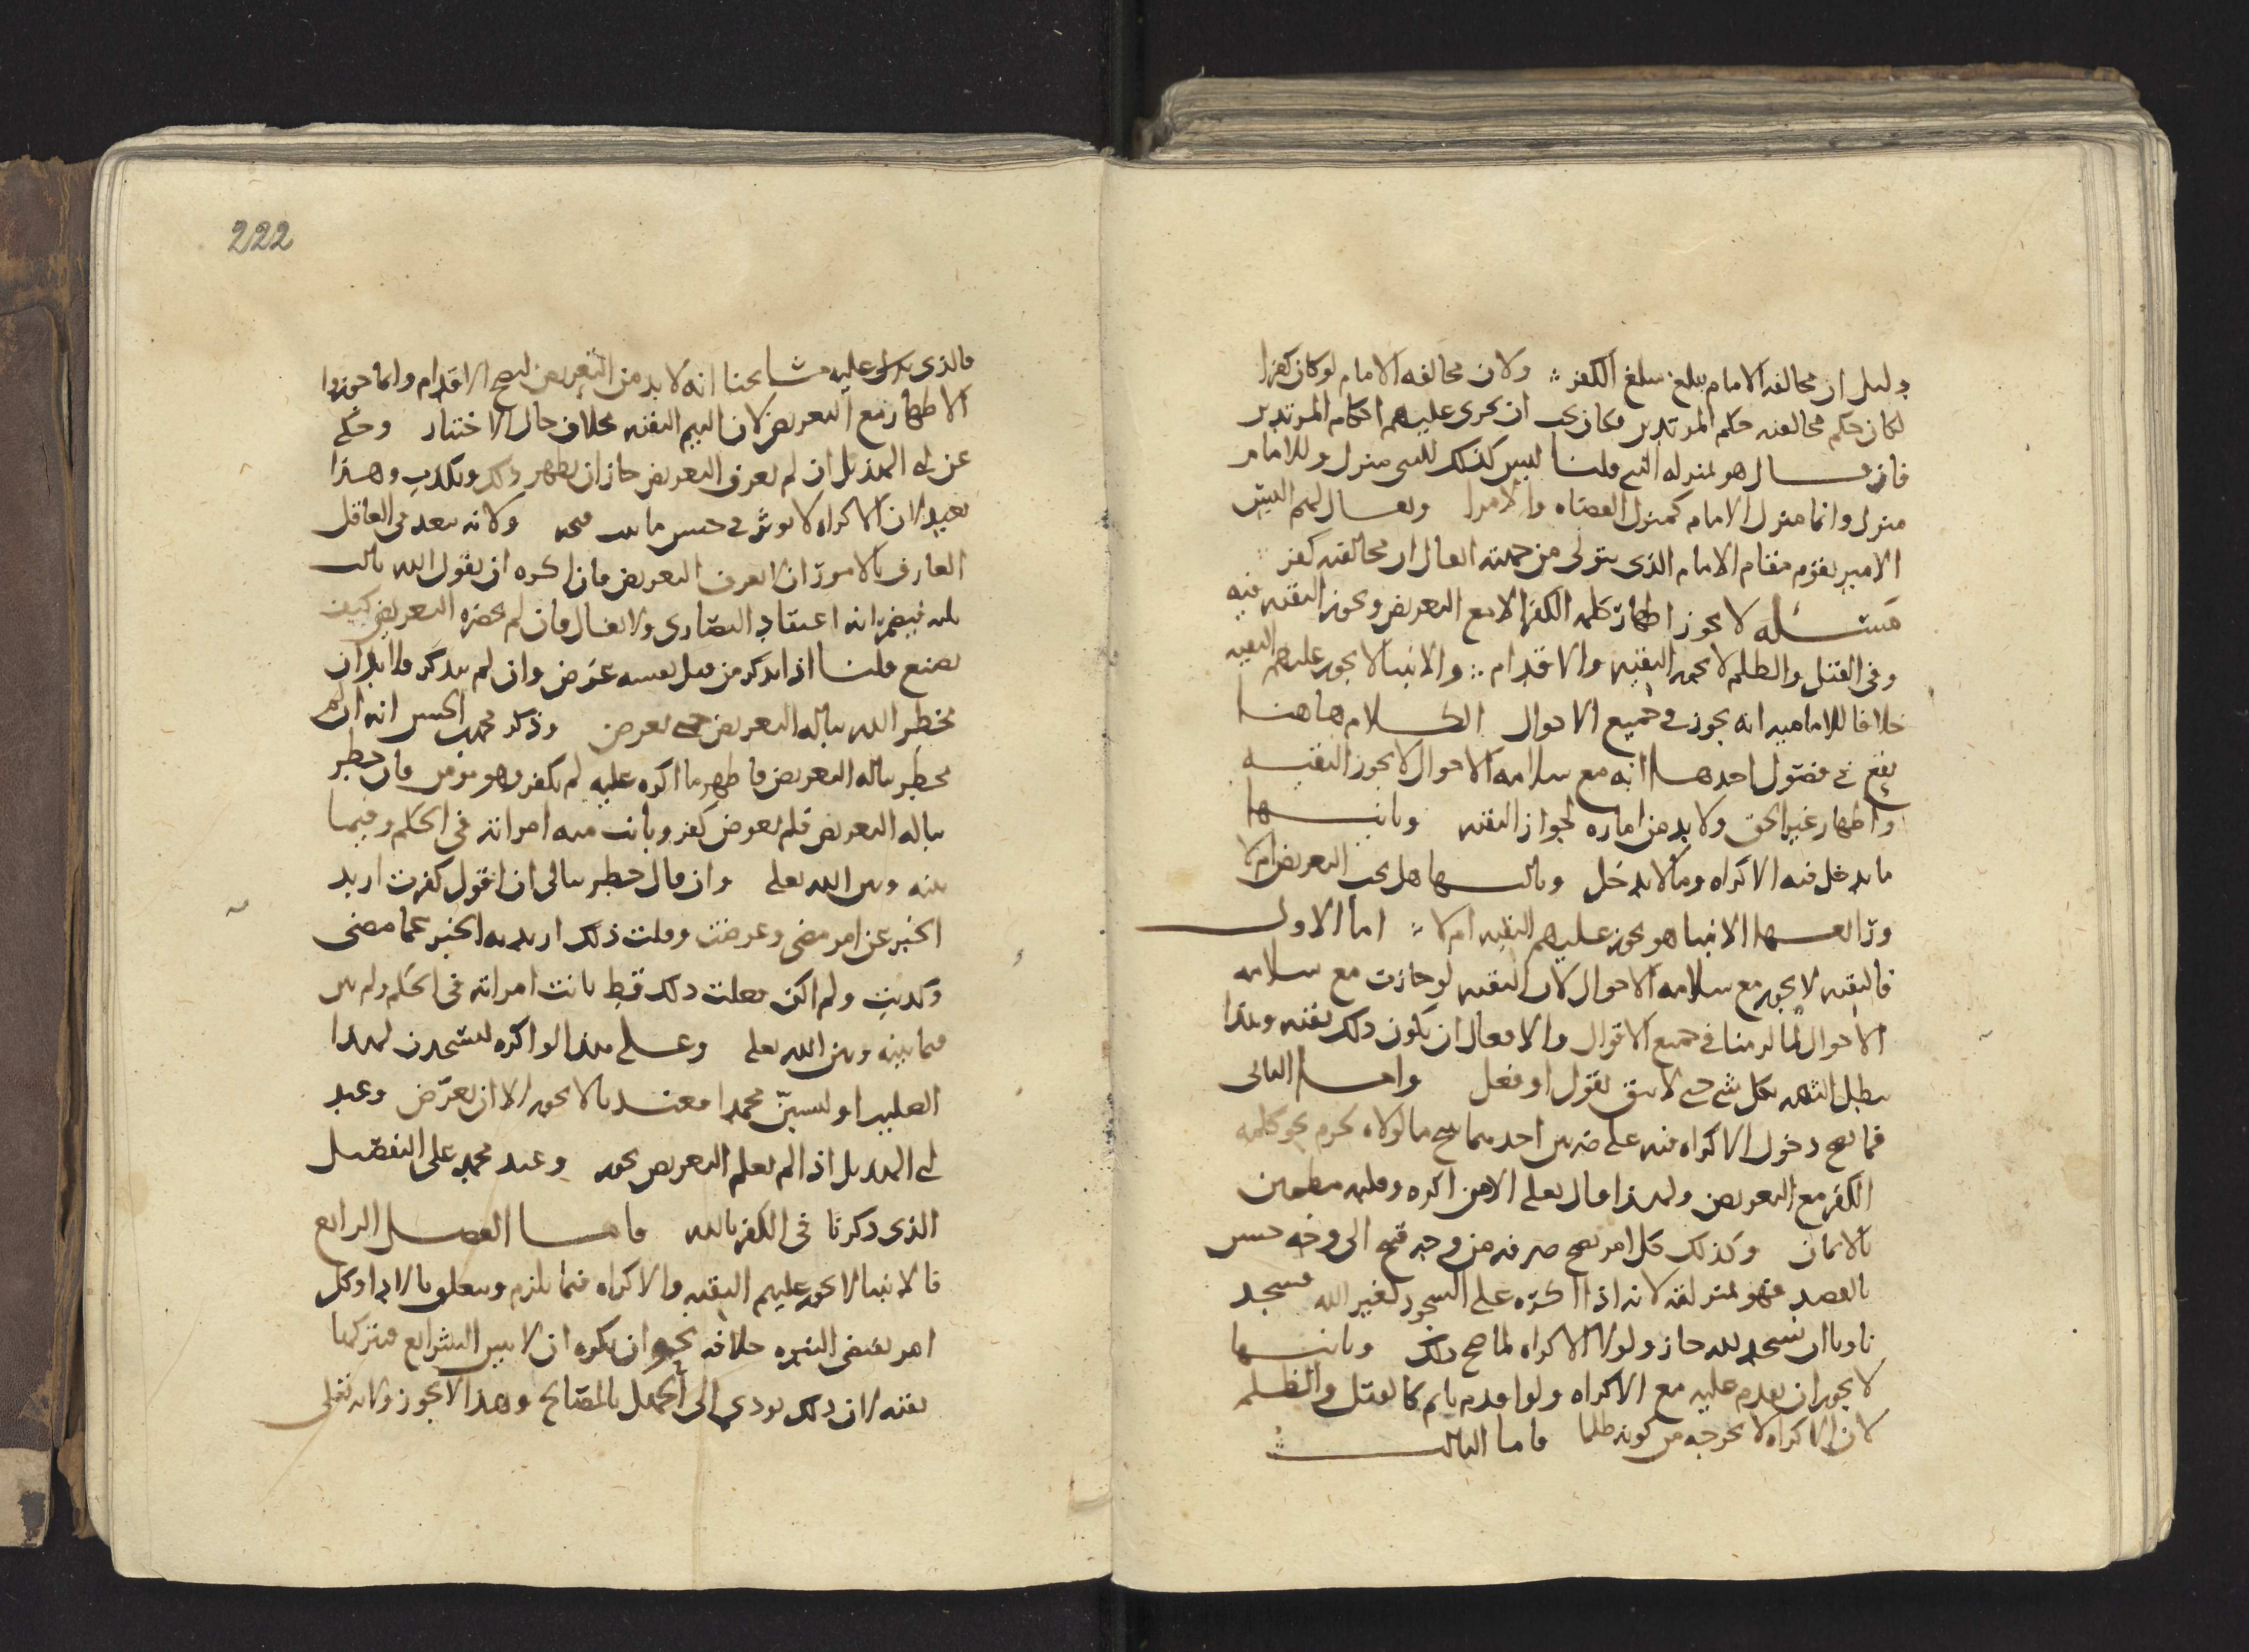 دليل ان مخالفه الامام يبلغ مبلغ الكفر ولان مخالفه الامام لو كان كفرا
لكان حكم مخالفه حكم المرتدين فكان يجب ان يجرى عليهم احكام المرتدين
فان قال هو بمنزله النبي قلنا ليس كذلك للنبي منزل وللامام
منزل وانما منزل الامام كمنزل القضاه والامرا ويقال لهم اليس
الامير يقوم مقام الامام الذى يتولى من جهته افيقال ان مخالفته كفر
مسئله لا يجوز اظهار كلمه الكفر الا مع التعريض ويجوز التقيه فيه
وفى القتل والظلم لا يجوز التقيه والاقدام والانبيا لا يجوز عليهم التقيه
خلافا للاماميه انه يجوز فى جميع الاحوال الكلام هاهنا
يقع فى فصول احدها انه مع سلامه الاحوال لا يجوز التقيه
واظهار غير الحق ولا بد من اماره لجواز التقيه وثانيها
ما يدخل فيه الاكراه وما لا يدخل وثالثها هل يجب التعريض ام لا
ورابعها الانبيا هو يجوز عليهم التقيه ام لا اما الاول
فالتقيه لا يجوز مع سلامه الاحوال لان التقيه لو جازت مع سلامه
الاحوال لما امنا فى جميع الاقوال والافعال ان يكون ذلك تقيه وهذا
يبطل الثقه بكل شي حتى لا يبقى بقول او فعل واما الثانى
فما يصح دخول الاكراه فيه على ضربين احدهما يبيح ما لولاه لحرم نحو كلمه
الكفر مع التعريض ولهذا قال تعلى الا من اكره وقلبه مطمئن
بالايمان وكذلك كل امر يصح صرفه من وجه قبح الى وجه حسن
بالقصد فهو بمنزلته لانه اذا اكره على السجود لغير الله فسجد
ناويا ان يسجد لله جاز ولولا الاكراه لما صح ذلك وثانيها
لا يجوز ان يقدم عليه مع الاكراه ولو اقدم ياثم كالقتل والظلم
لان الاكراه لا يخرجه من كونه ظلما فاما الثالث
222
فالذى يدل عليه مشايخنا انه لا بد من التعريض ليصح الاقدام وانما جوزوا
الاظهار مع التعريض لان اليم التقيه بخلاف حال الاختيار وحكى
عن ابى الهذيل ان لم يعرف التعريض جاز ان يظهر ذلك ويكذب وهذا
بعيد لان الاكراه لا يوثر فى حسن ما ثبت قبحه ولانه يبعد فى العاقل
العارف بالامور ان لا يعرف التعريض فان اكره ان يقول الله ثالث
ثلثه فيضمر انه اعتقاد النصارى ولا يقال فان لم يحضره التعريض كيف
يصنع قلنا اذا تذكر من قبل نفسه عرض وان لم يتذكر فلا بد ان
يخطر الله بباله التعريض حتى يعرض وذكر محمد بن الحسن انه ان لم
يخطر بباله التعريض فاظهر ما اكره عليه لم يكفر وهو مومن فان خطر
بباله التعريض فلم يعرض كفر وبانت منه امراته فى الحكم وفيما
بينه وبين الله تعلى وان قال خطر ببالى ان اقول كفرت اريد
الخبر عن امر مضى وعرضت وقلت ذلك اريد به الخبر عما مضى
وكذبت ولم اكن فعلت ذلك قط بانت امراته فى الحكم ولم تبن
فيما بينه وبين الله تعلى وعلى هذا لو اكره ليسجدن لهذا
الصليب او ليسبن محمدا فعندنا لا يجوز الا ان يعرض وعند
ابى الهذيل اذا لم يعلم التعريض يجوز وعند محمد على التفصيل
الذى ذكرنا فى الكفر بالله فاما الفصل الرابع
فالانبيا لا يجوز عليهم التقيه والاكراه فيما يلزم ويتعلق بالادا وكل
امر يقتضى النفره خلافه نحو ان يكره ان لا يبين الشرايع فيتركها
تقيه لان ذلك يودى الى الجهل بالمصالح وهذا لا يجوز ولانه تعلى